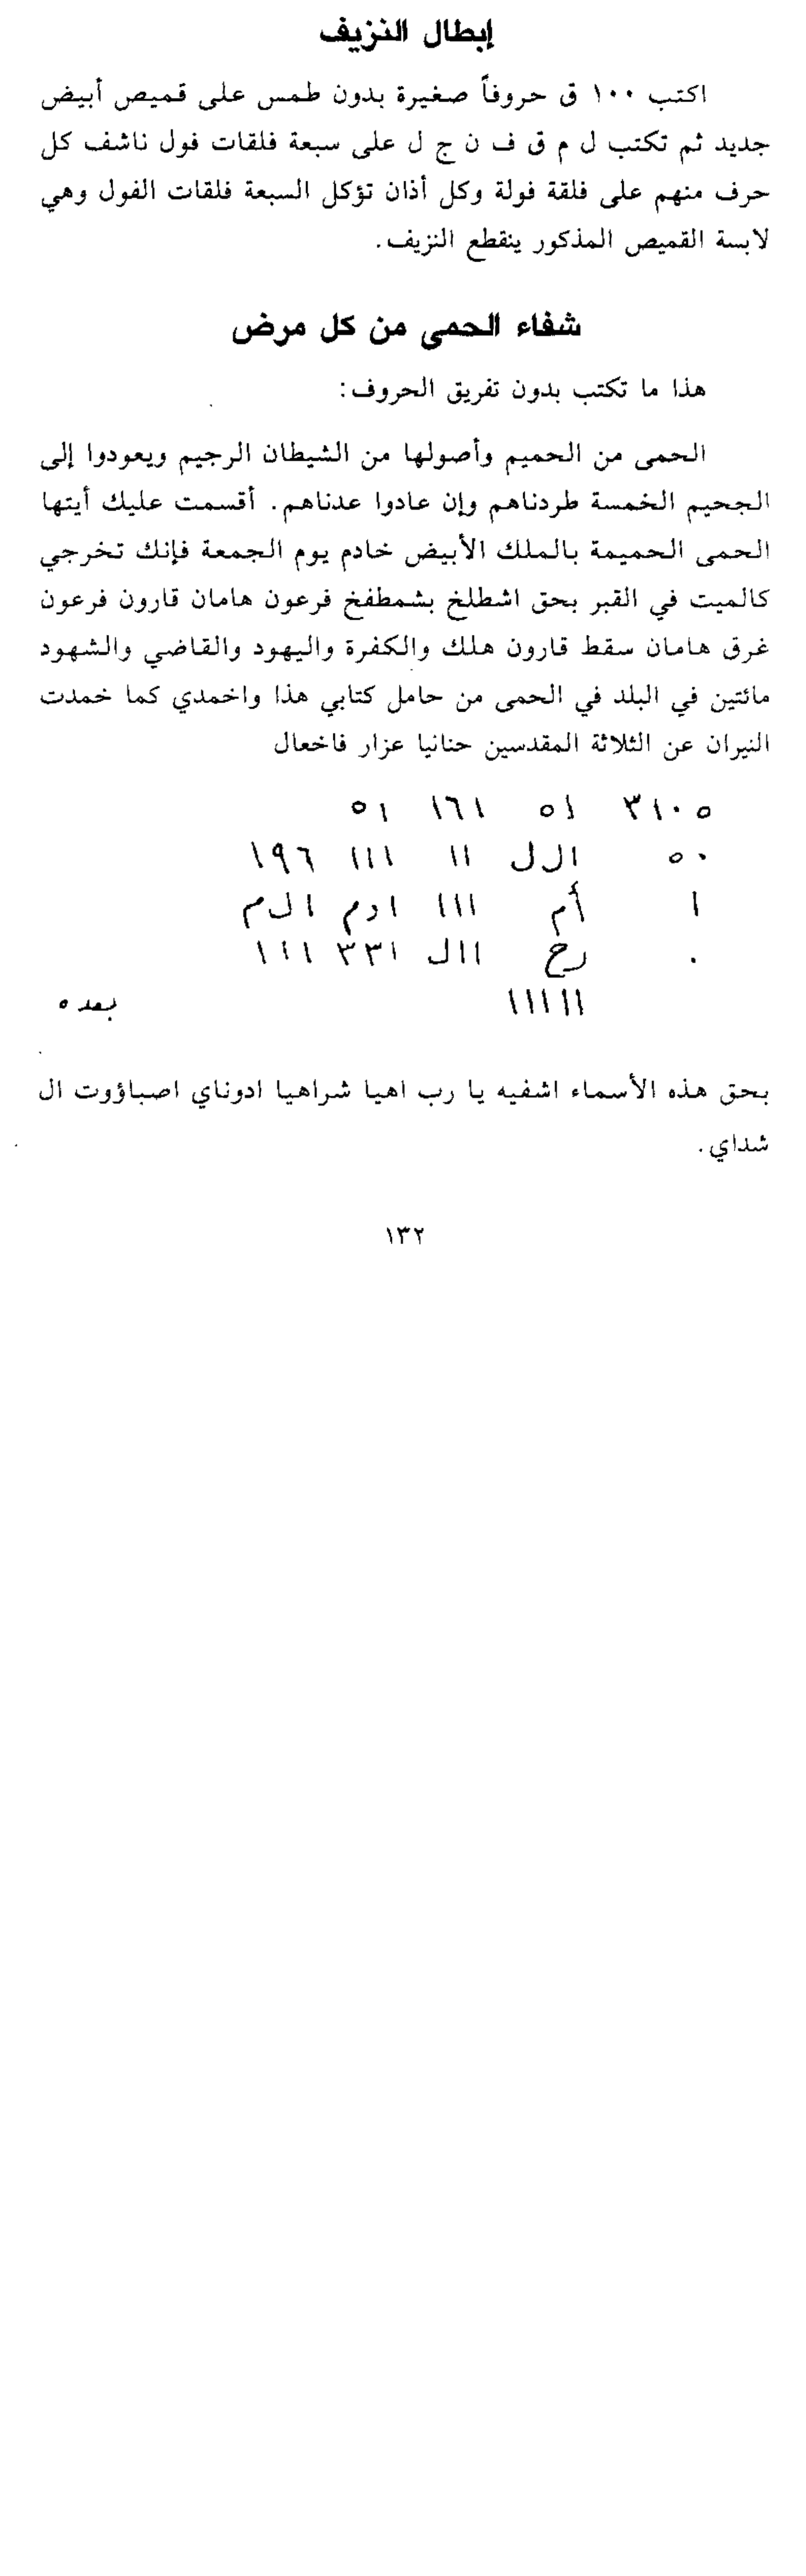 إبطال النزيف
اكتب ١٠٠ ق حروفاً صغيرة بدون طمس على قميص أبيض
جديد ثم تكتب ل م ق ف ن ج ل على سبعة فلقات فول ناشف كل
حرف منهم على فلقة فولة وكل أذان تؤكل السبعة فلقات الفول وهي
لابسة القميص المذكور ينقطع النزيف.
شفاء الحمى من كل مرض
هذا ما تكتب بدون تفريق الحروف:
الحمى من الحميم وأصولها من الشيطان الرجيم ويعودوا إلى
الجحيم الخمسة طردناهم وإن عادوا عدناهم. أقسمت عليك أيتها
الحمى الحميمة بالملك الأبيض خادم يوم الجمعة فإنك تخرجي
كالميت في القبر بحق اشطلخ بشمطفخ فرعون هامان قارون فرعون
غرق هامان سقط قارون هلك والكفرة واليهود والقاضي والشهود
مائتين في البلد في الحمى من حامل كتابي هذا واخمدي كما خمدت
النيران عن الثلاثة المقدسين حنانيا عزار فاخعال
٥ ٠ ١ ٣ ١٥ ١٦١ ١ ٥
٠ ٥ ال ل ١١ ١١١ ١٩٦
ا أم ١١١ ا ر م ا ل م
٠ رح ١١ل ١٣٣ ١١١
١١١١١ بعد ٥
بحق هذه الأسماء اشفيه يا رب اهيا شراهيا ادوناي اصباؤوت ال
شداي.
١٣٢